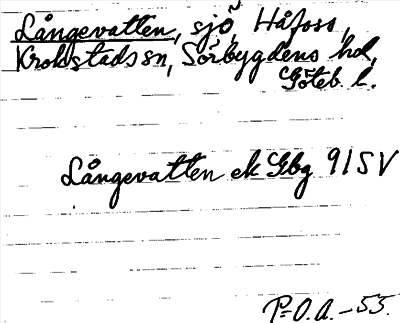 Långevatten, sjö, Håfoss,
Krokstads sn, Sörbygdens hd,
Göteb. l.
Långevatten ek Gbg 91SV
P-O.A. -55.